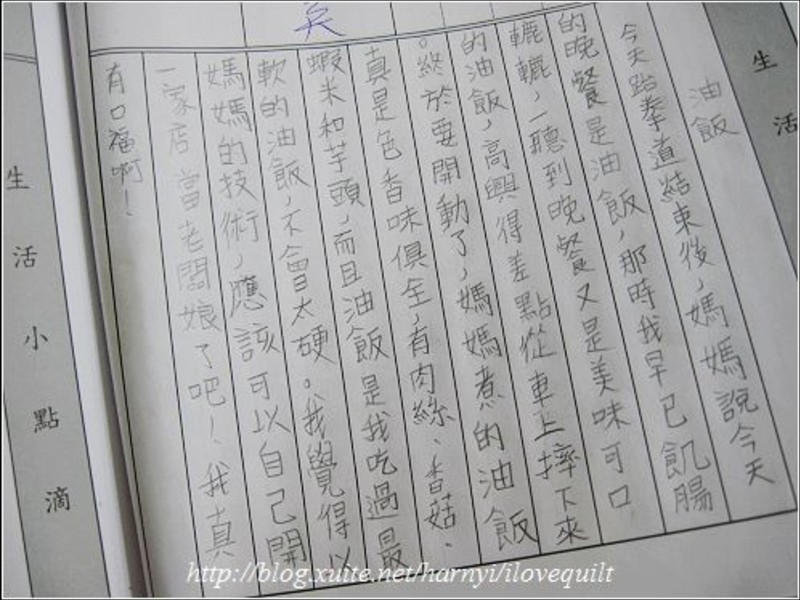 生活
油飯
今天跆拳道結束後，媽媽說今天
的晚餐是油飯，那時我早已飢腸
轆轆，一聽到晚餐又是美味可口
的油飯，高興得差點從車上摔下來
。終於要開動了，媽媽煮的油飯
真是色香味俱全，有肉絲、香菇、
蝦米和芋頭，而且油飯是我吃過最
軟的油飯，不會太硬。我覺得以
媽媽的技術，應該可以自己開
一家店當老闆娘了吧！我真
有口福啊！
生活小點滴
http://blog.xuite.net/harnyi/ilovequilt